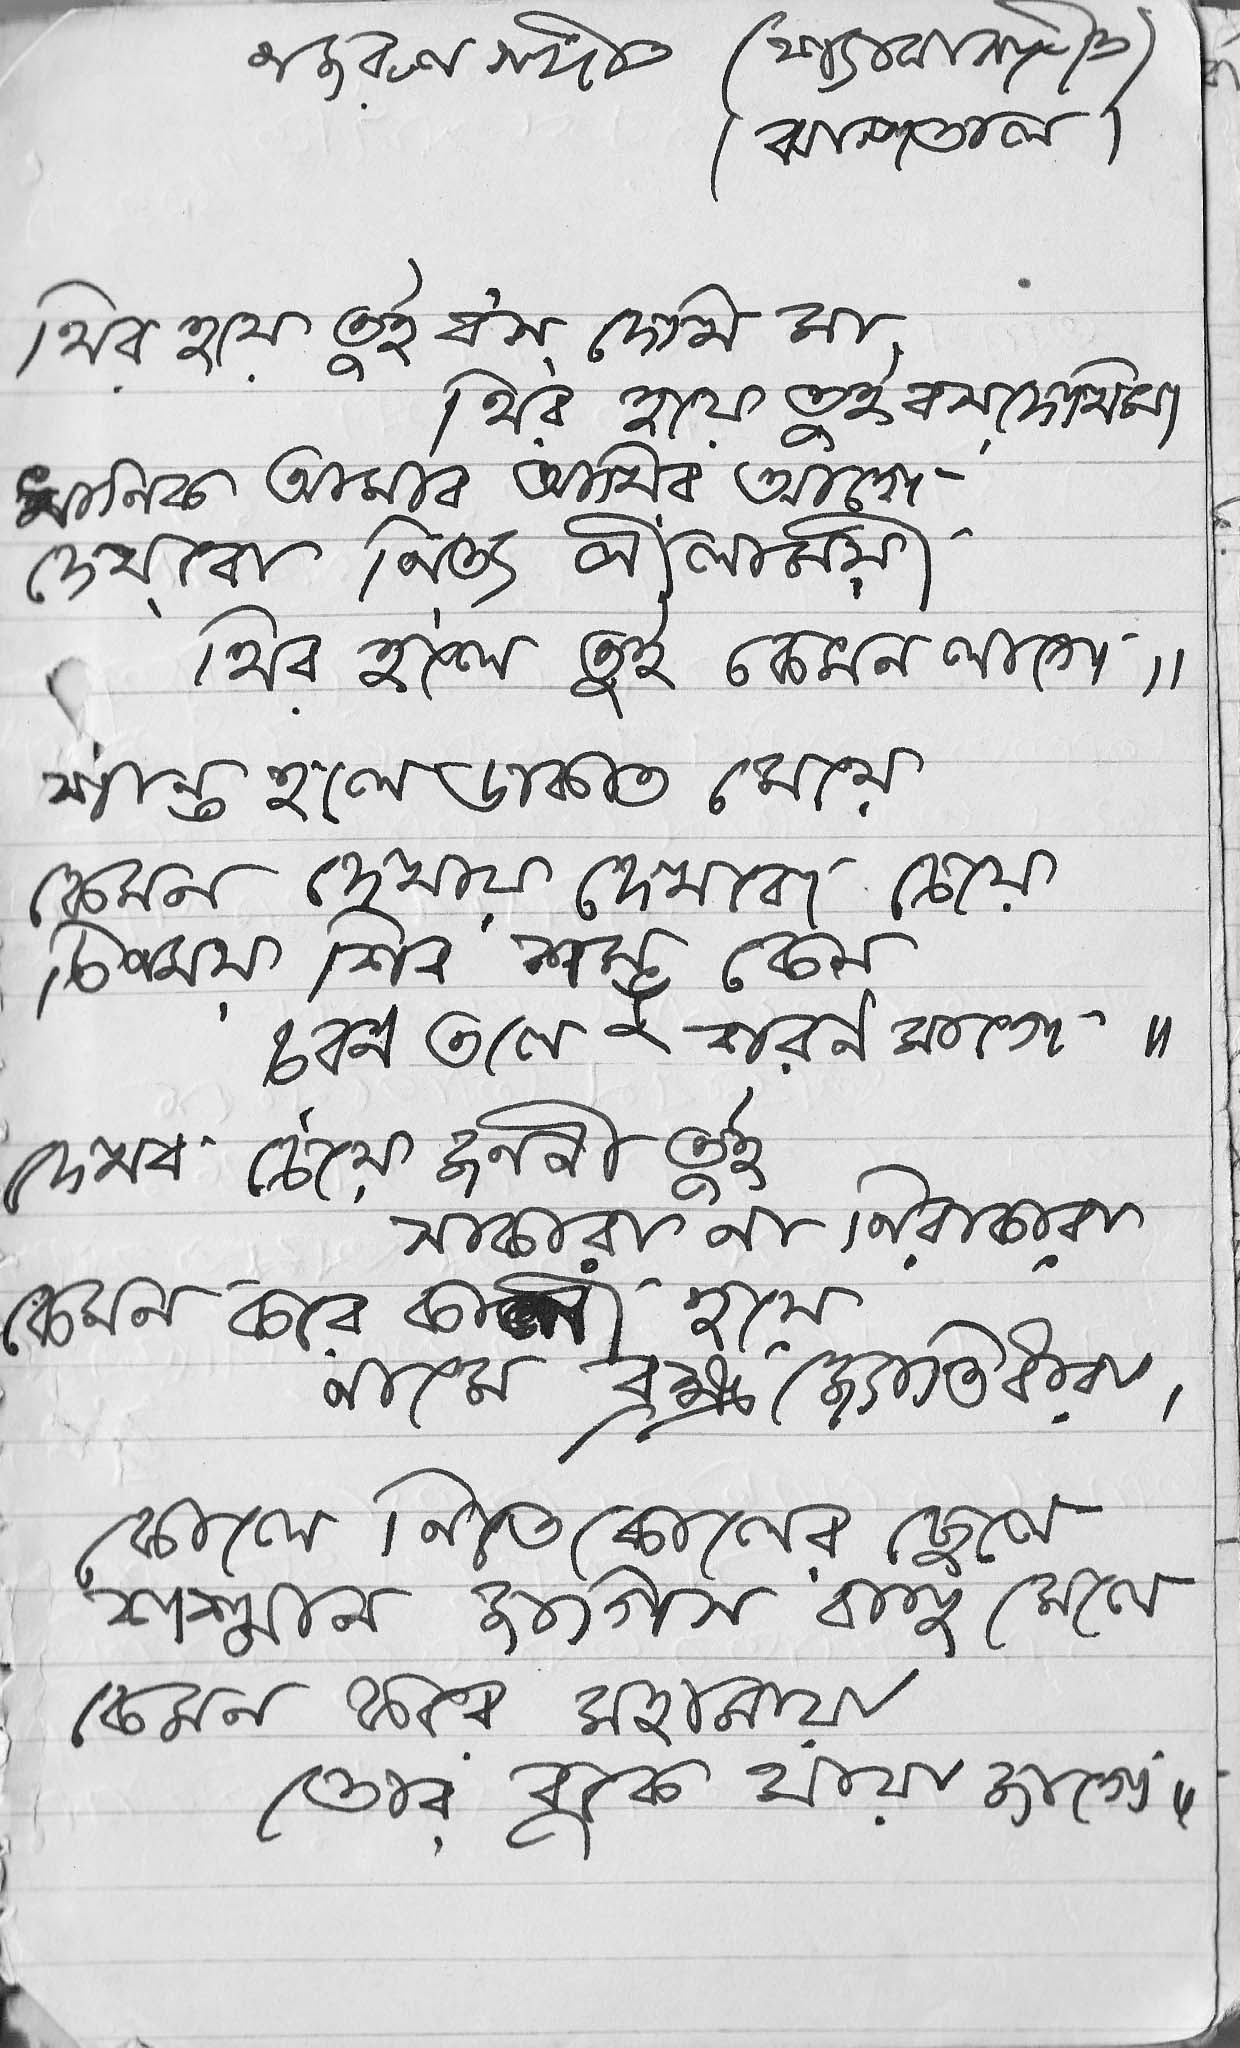 নজরুল গীতি (শ্যামাসংগীত)
(ঝাঁপতাল)
থির হয়ে তুই বস্ দেখি মা,
থির হয়ে তুই বস্ দেখি মা
খানিক আমার আঁখির আগে
দেখ্‌বো নিত্য লীলাময়ী
থির হলে তুই কেমন লাগে ॥
শান্ত হলে ডাকাত মেয়ে
কেমন দেখায় দেখবো চেয়ে
চিন্ময় শিব শম্ভু কেন
চরণ তলে শরণ মাগে ॥
দেখব চেয়ে জননী তুই
সাকারা না নিরাকারা
কেমন করে কালী হয়ে
নামে ব্রহ্ম জ্যোতিধারা ।
কোলে নিতে কোলের ছেলে
শ্মশান জাগিস বাহু মেলে
কেমন করে মহামায়া
তোর বুকে মায়া জাগে ॥